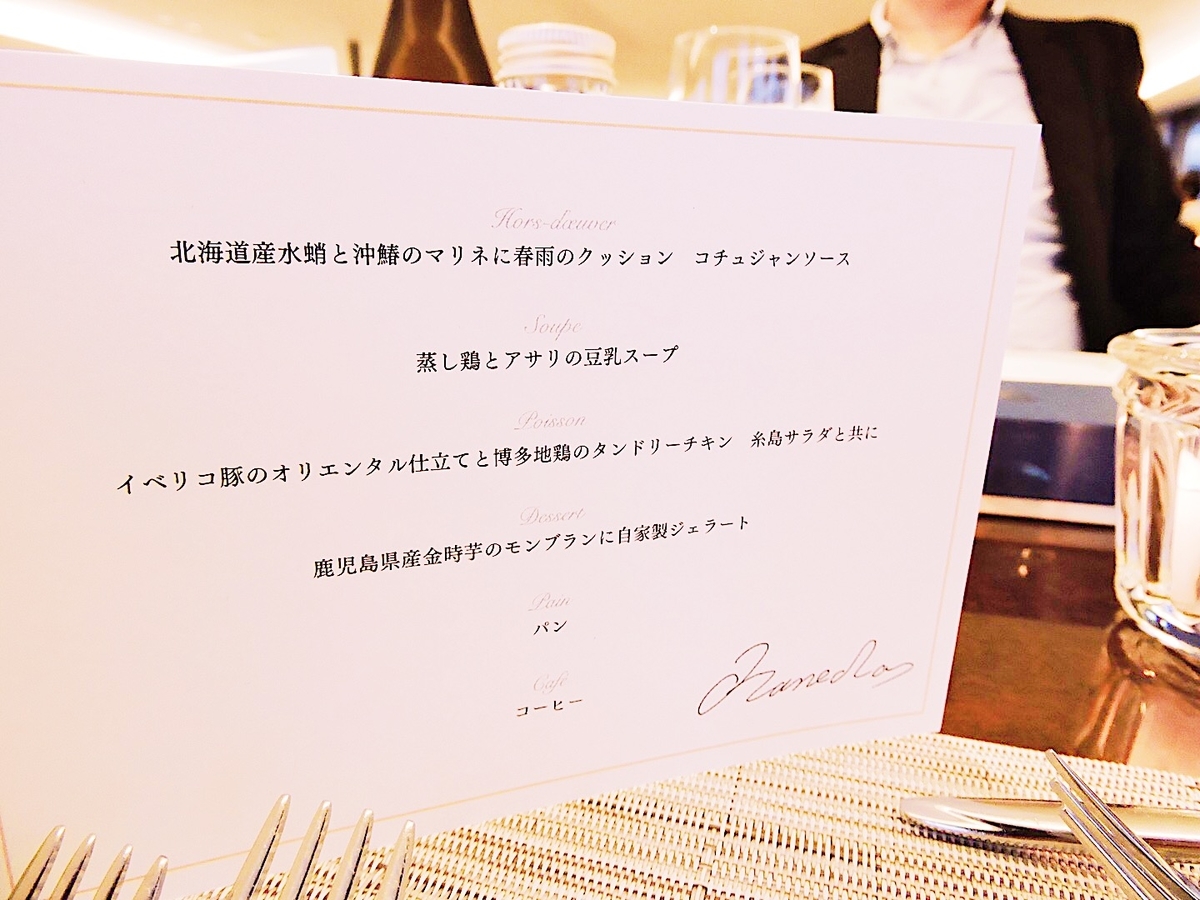 Hors-dœuver
北海道産水蛸と沖鰆のマリネに春雨のクッション　コチュジャンソース
Soupe
蒸し鶏とアサリの豆乳スープ
Poisson
イベリコ豚のオリエンタル仕立てと博多地鶏のタンドリーチキン　糸島サラダと共に
Dessert
鹿児島県産金時芋のモンブランに自家製ジェラート
Pain
パン
Café
コーヒー